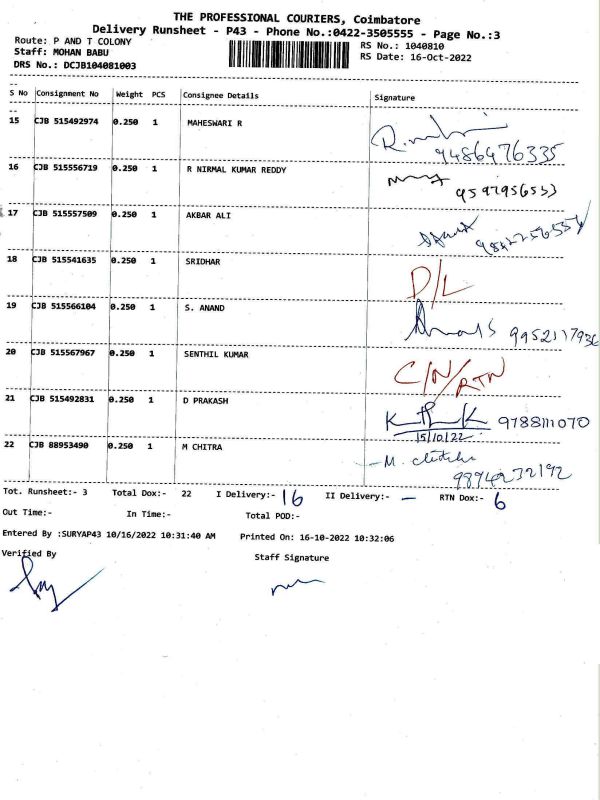 THE PROFESSIONAL COURIERS, Coimbatore
Delivery Runsheet - P43 - Phone No.:0422-3505555 - Page No.:3
Route: P AND T COLONY
RS No.: 1040810
Staff: MOHAN BABU
RS Date: 16-Oct-2022
DRS No.: DCJB104081003
S No Consignment No Weight PCS Consignee Details Signature
15 CJB 515492974 0.250 1 MAHESWARI R
9486476335
16 CJB 515556719 0.250 1 R NIRMAL KUMAR REDDY
17 CJB 515557509 0.250 1 AKBAR ALI
18 CJB 515541635 0.250 1 SRIDHAR D/L
19 CJB 515566104 0.250 1 S. ANAND
9952117936
20 CJB 515567967 0.250 1 SENTHIL KUMAR C/N/RTN
21 CJB 515492831 0.250 1 D PRAKASH 9788111070
15/10/22
22 CJB 88953490 0.250 1 M CHITRA M. chitra
9894232192
Tot. Runsheet:- 3 Total Dox:- 22 I Delivery:- 16 II Delivery:- — RTN Dox:- 6
Out Time:- In Time:- Total POD:-
Entered By :SURYAP43 10/16/2022 10:31:40 AM Printed On: 16-10-2022 10:32:06
Verified By Staff Signature